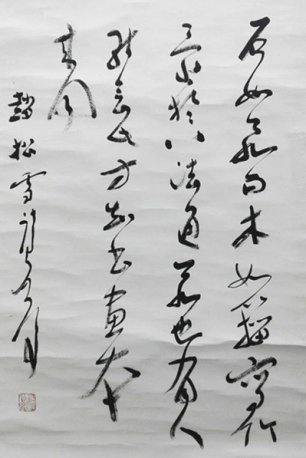 石如飛白木如籀寫竹
還於八法通若也有人
能會此方知書畫本
來同
趙松雪詩